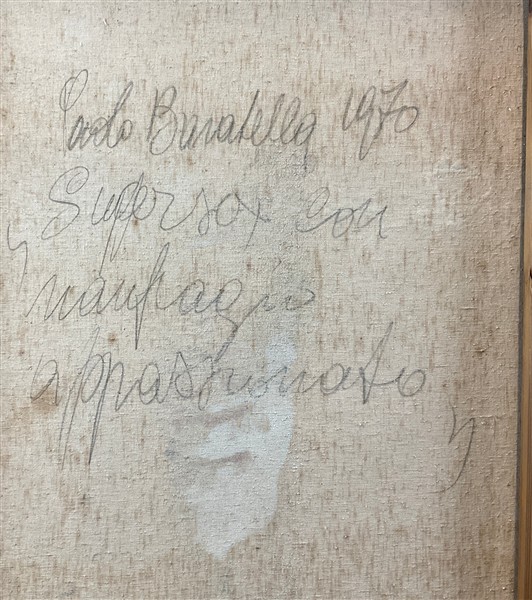 Paolo Baratella 1970
"Supersex con
naufragio
appassionato"